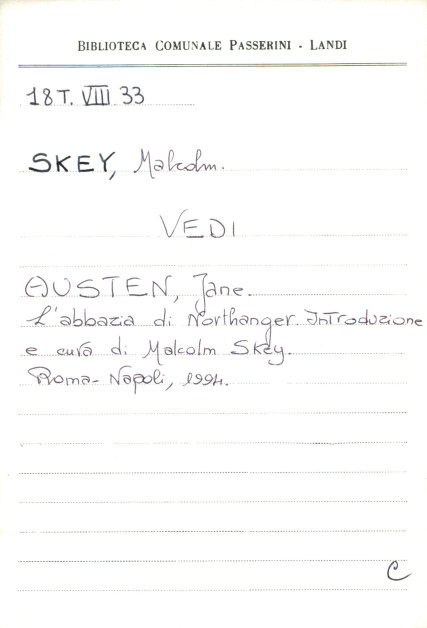 BIBLIOTECA COMUNALE PASSERINI - LANDI
18 T. VIII 33
SKEY, Malcolm.
VEDI
AUSTEN, Jane.
L'abbazia di Northanger. Introduzione
e cura di Malcolm Skey.
Roma-Napoli, 1994.
C